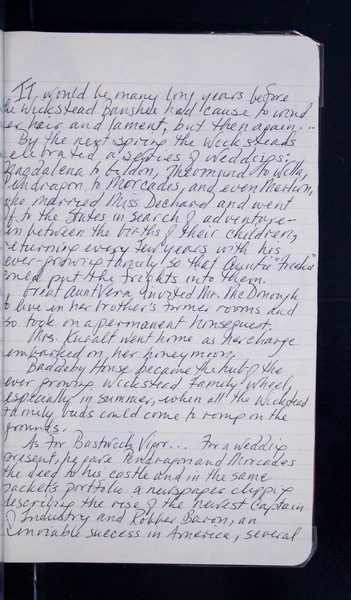 It would be many long years before
the Wickstead Banshee had cause to wind
her hair and lament, but then again...
By the next spring the Wicksteads
celebrated a series of weddings:
Magdalena to Eyldon, Theomund to Willa,
Pendragon to Morcades, and even Merlwin,
who married Miss Dechard and went
off to the States in search of adventure –
in between the births of their children,
returning every few years with his
ever-growing family so that Auntie "Freddie"
could put the frights into them.
Great Aunt Vera invited Mr. McDonough
to live in her brother's former rooms and
so took on a permanent Nonsequest.
Mrs. Kuralt went home as her charge
embarked on her honeymoon.
Baddeby House became the hub of the
ever growing Wickstead family wheel,
especially in summer, when all the Wickstead
family buds could come to romp on the
grounds.
As for Bastwick Vigor... For a wedding
present, he gave Pendragon and Morcades
the deed to his castle and in the same
packets portfolio a newspaper clipping
describing the rise of the newest Captain
of Industry and Robber Baron, an
enviable success in America, several